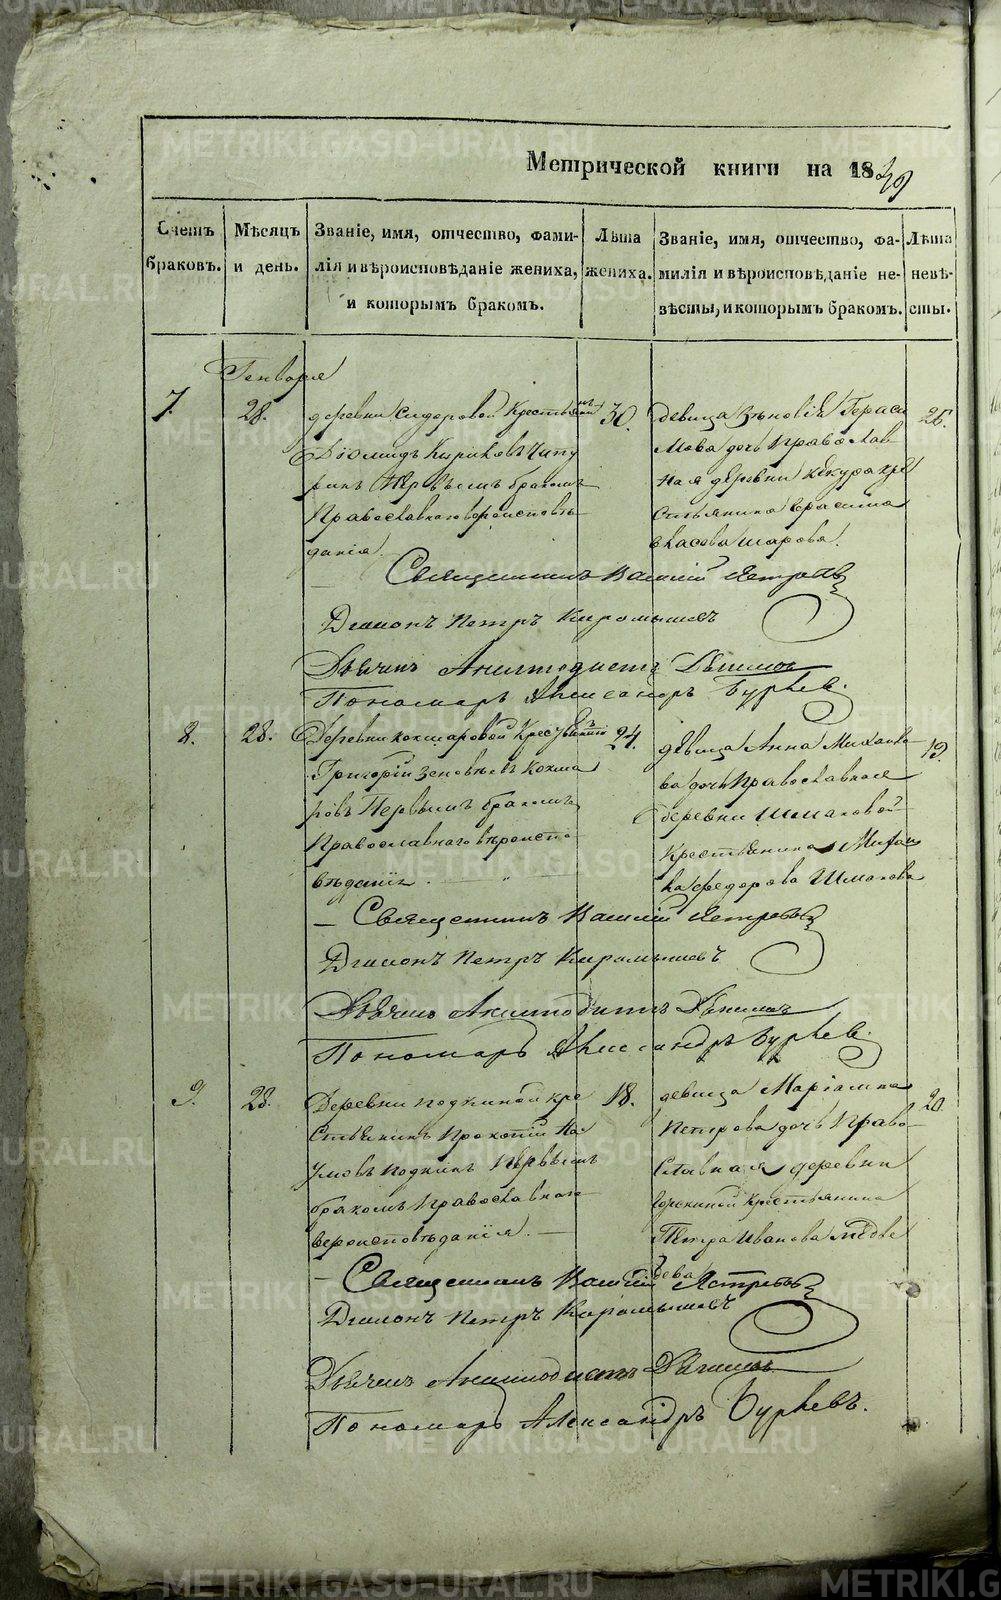 METRIKI.GASO-URAL.RU
Метрической книги на 1839
Счетъ браковъ.
Мѣсяцъ и день.
Званіе, имя, отчество, фами-
лія и вѣроисповѣданіе жениха,
и которымъ бракомъ.
Лѣта
жениха.
Званіе, имя, отчество, фа-
милія и вѣроисповѣданіе не-
вѣсты, и которымъ бракомъ.
Лѣта
невѣ-
сты.
Генваря
7. 28.
деревни Сидоровой Крестьянинъ
Діомидъ Кириловъ
первымъ бракомъ
Православнаго вероисповѣ-
данія.
30.
девица Зѣновія Гераси
мова дочь Православ
ная деревни кре
стьянина Герасима
Власова Шарова.
25.
Священникъ Василій Ястребовъ
Діаконъ Петръ Карамышевъ
Дьячекъ
Пономарь Александръ Бурлев.
8. 28.
Деревни Кокшаровой Крестьянинъ
Григорій Зеновьевъ Кокша
ровъ Первымъ бракомъ
Православнаго вѣроиспо
вѣданія.
24.
девица Анна Михайло
ва дочь Православная
деревни Шмаковой
Крестьянина Михаи
ла Федорова Шмакова
19.
Священникъ Василій Ястребовъ
Діаконъ Петръ Карамышевъ
Дьячекъ
Пономарь Александръ Бурлев.
9. 28.
Деревни Подкиной кре
стьянинъ Прокопій На
умовъ Подкинъ Первымъ
бракомъ Православнаго
вероисповѣданія.
18.
девица Маріамна
Петрова дочь Право
славная деревни
крестьянина
Петра Иванова Медве
дева
20.
Священникъ Василій Ястребовъ
Діаконъ Петръ Карамышевъ
Дьячекъ
Пономарь Александръ Бурлевъ.